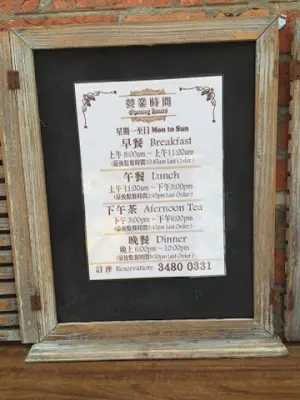 營業時間
Opening hours
星期一至日 Mon to Sun
早餐 Breakfast
上午 8:00am ~ 上午11:00am
(最後點餐時間10:45am Last Order)
午餐 Lunch
上午 11:00am ~ 下午3:00pm
(最後點餐時間2:45pm Last Order)
下午茶 Afernoon Tea
下午 3:00pm ~ 下午6:00pm
(最後點餐時間5:45pm Last Order)
晚餐 Dinner
晚上 6:00pm ~ 10:00pm
(最後點餐時間9:30pm Last Order)
訂座 Reservation: 3480 0331